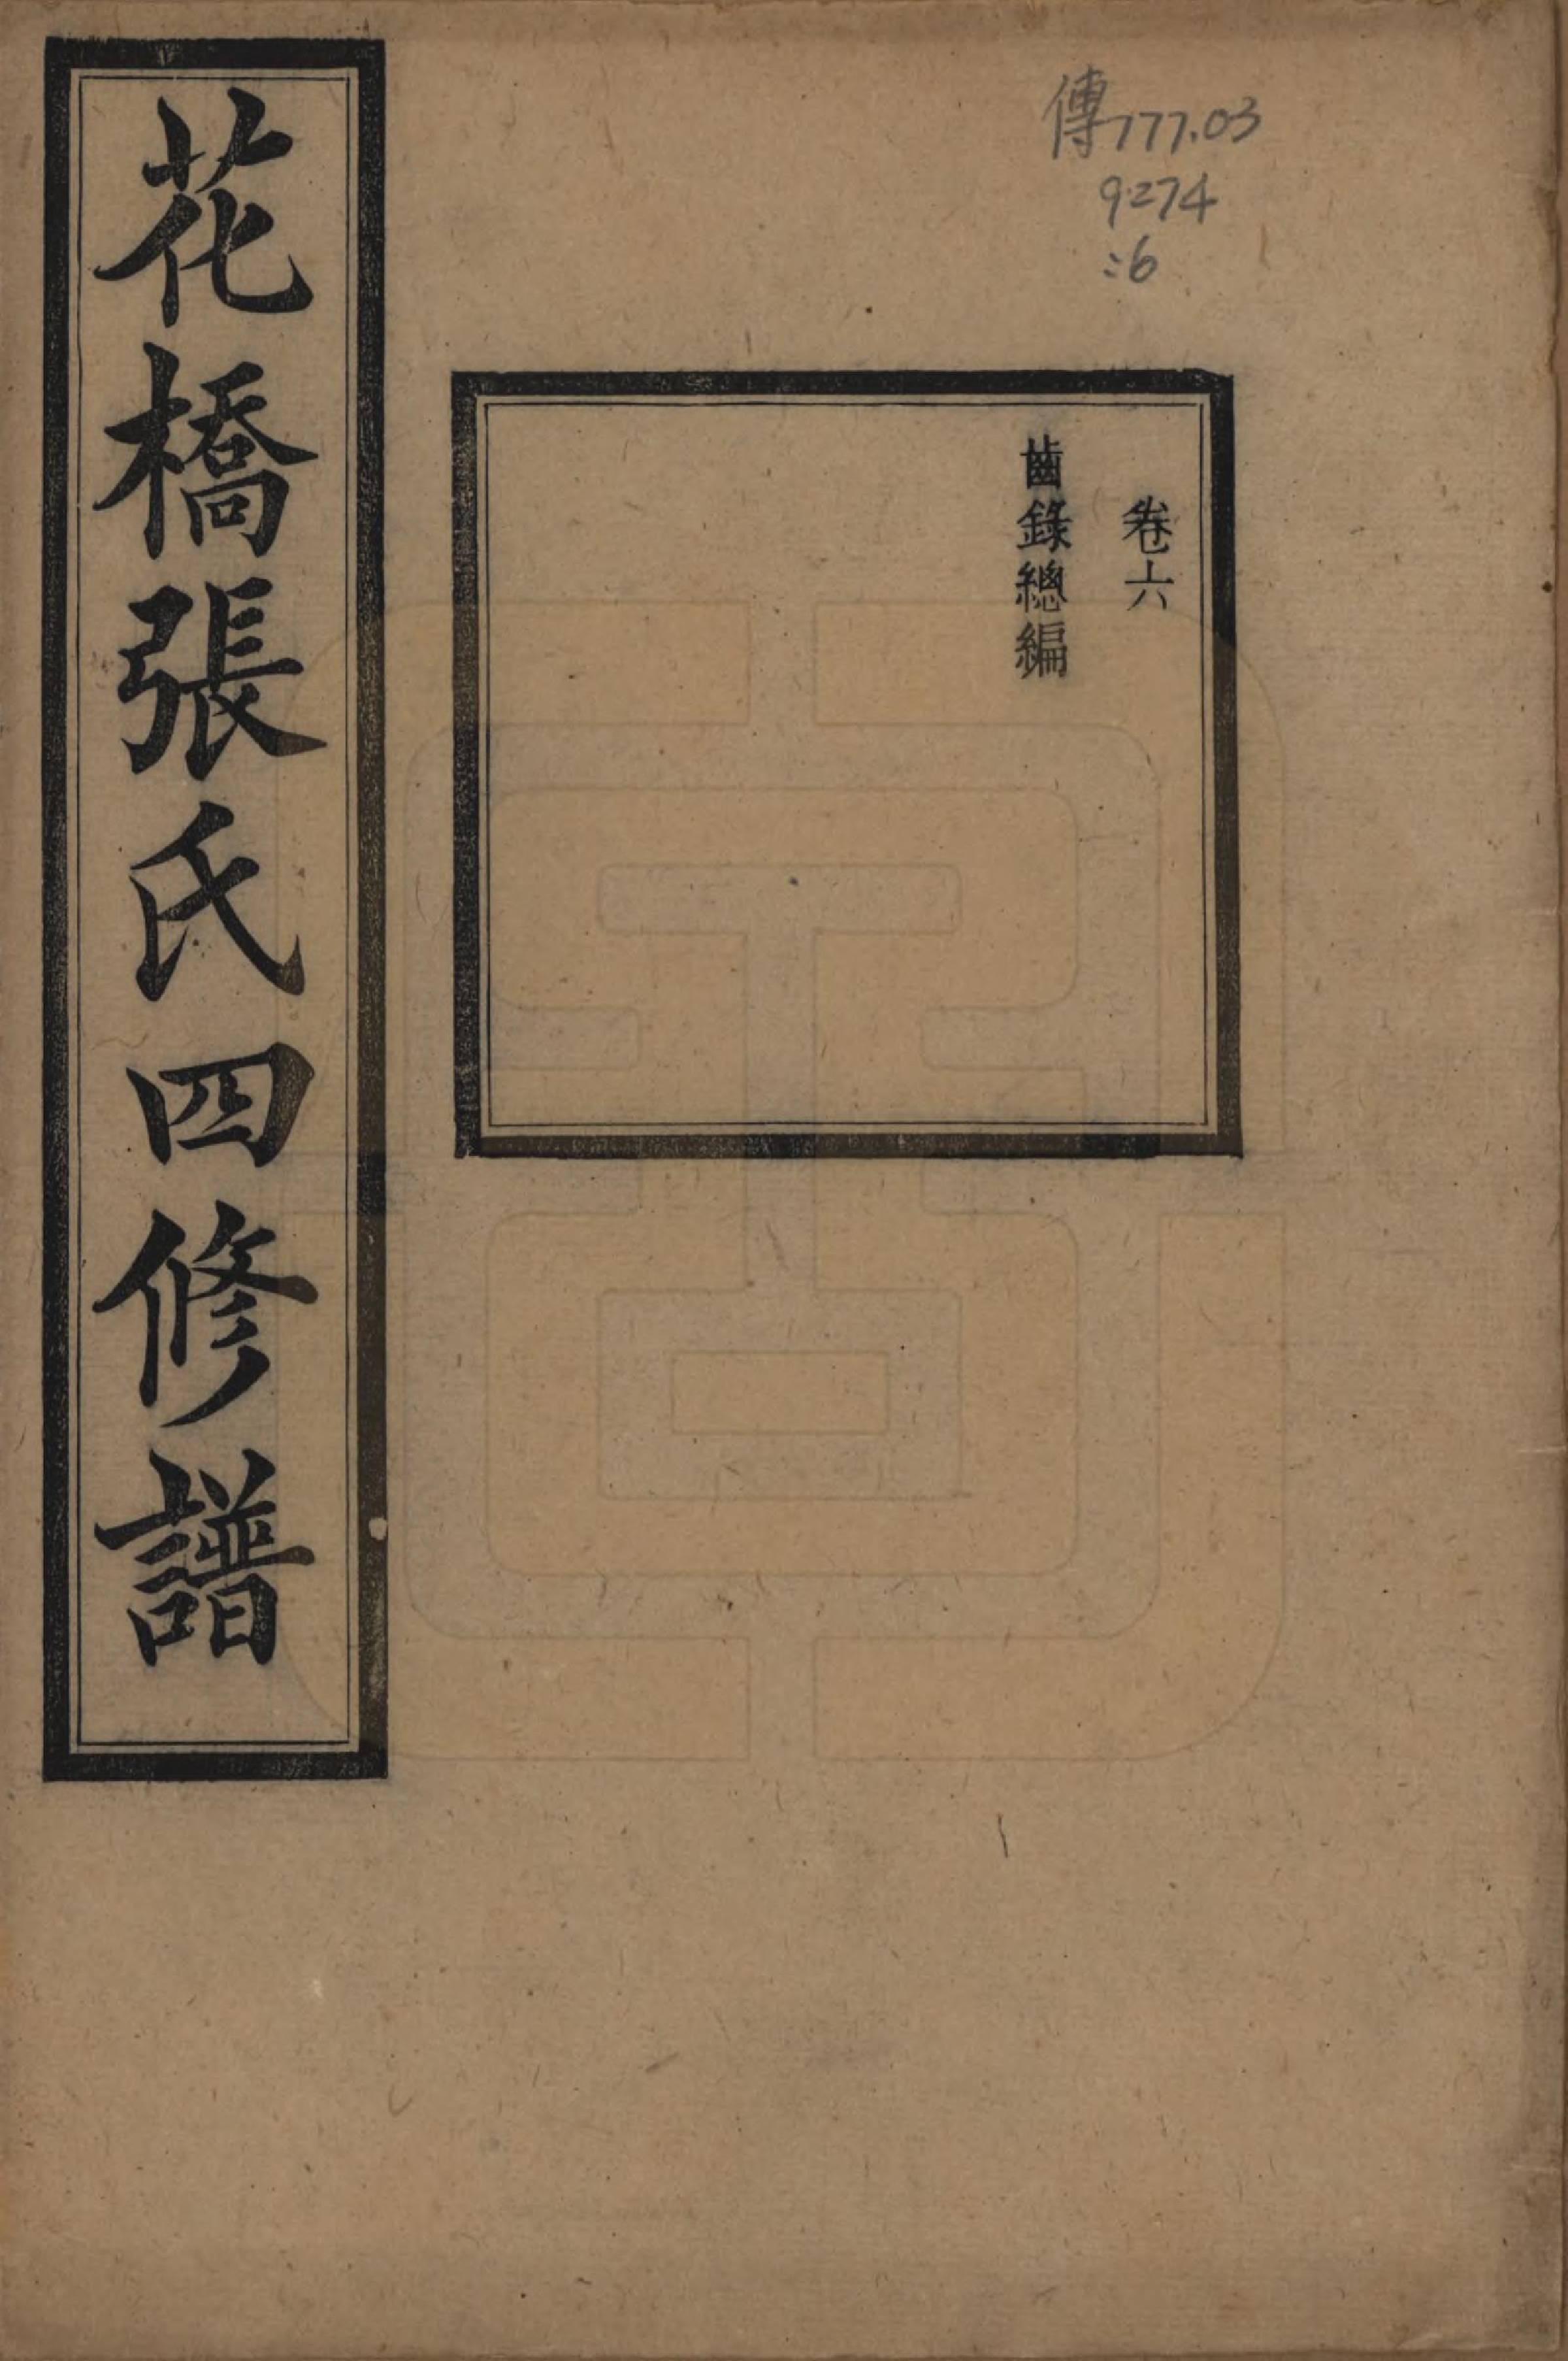 傳777.03
9274
:6
卷六
齒錄總編
花橋張氏四修譜